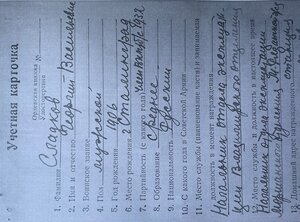 Учетная карточка
Орденская книжка №
Удостоверение
1. Фамилия Сладков
2. Имя и отчество Георгий Васильевич
3. Воинское звание
4. Пол мужской
5. Год рождения 1906
6. Место рождения г Сталинград
7. Партийность (с какого года) член ВКП/б/ с 1932
8. Образование среднее
9. Национальность Русский
10. С какого года в Советской Армии
11. Место службы (наименование части) и занимаемая
должность в момент награждения
Начальник отдела эксплуата-
ции отделения
12. Место службы и должность в настоящее время
Начальник отдела эксплуатации
Мурманского отделения
станция
13. Домашний адрес награжденного